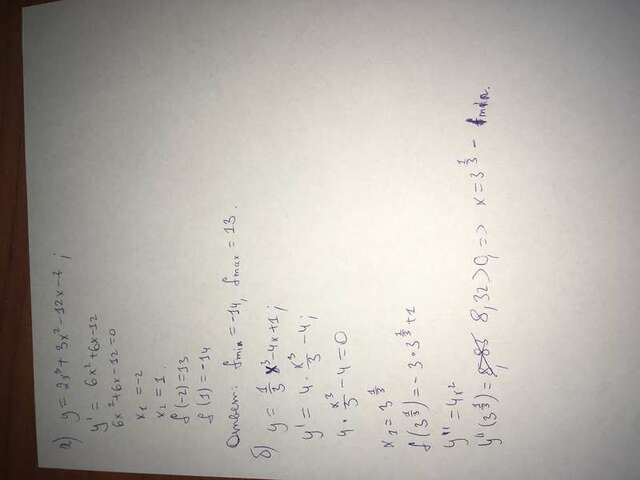 а) y = 2x³ + 3x² - 12x - 7 ;
y' = 6x² + 6x - 12
6x² + 6x - 12 = 0
x₁ = -2
x₂ = 1.
f(-2) = 13
f(1) = -14
Ответ: fmin = -14, fmax = 13.
б) y = 1/3 x³ - 4x + 1 ;
y' = 4 · x³/3 - 4 ;
4 · x³/3 - 4 = 0
x₁ = 3^(1/3)
f(3^(1/3)) = -3 · 3^(1/3) + 1
y'' = 4x²
y''(3^(1/3)) = 8,32 > 0, => x = 3^(1/3) - fmin.